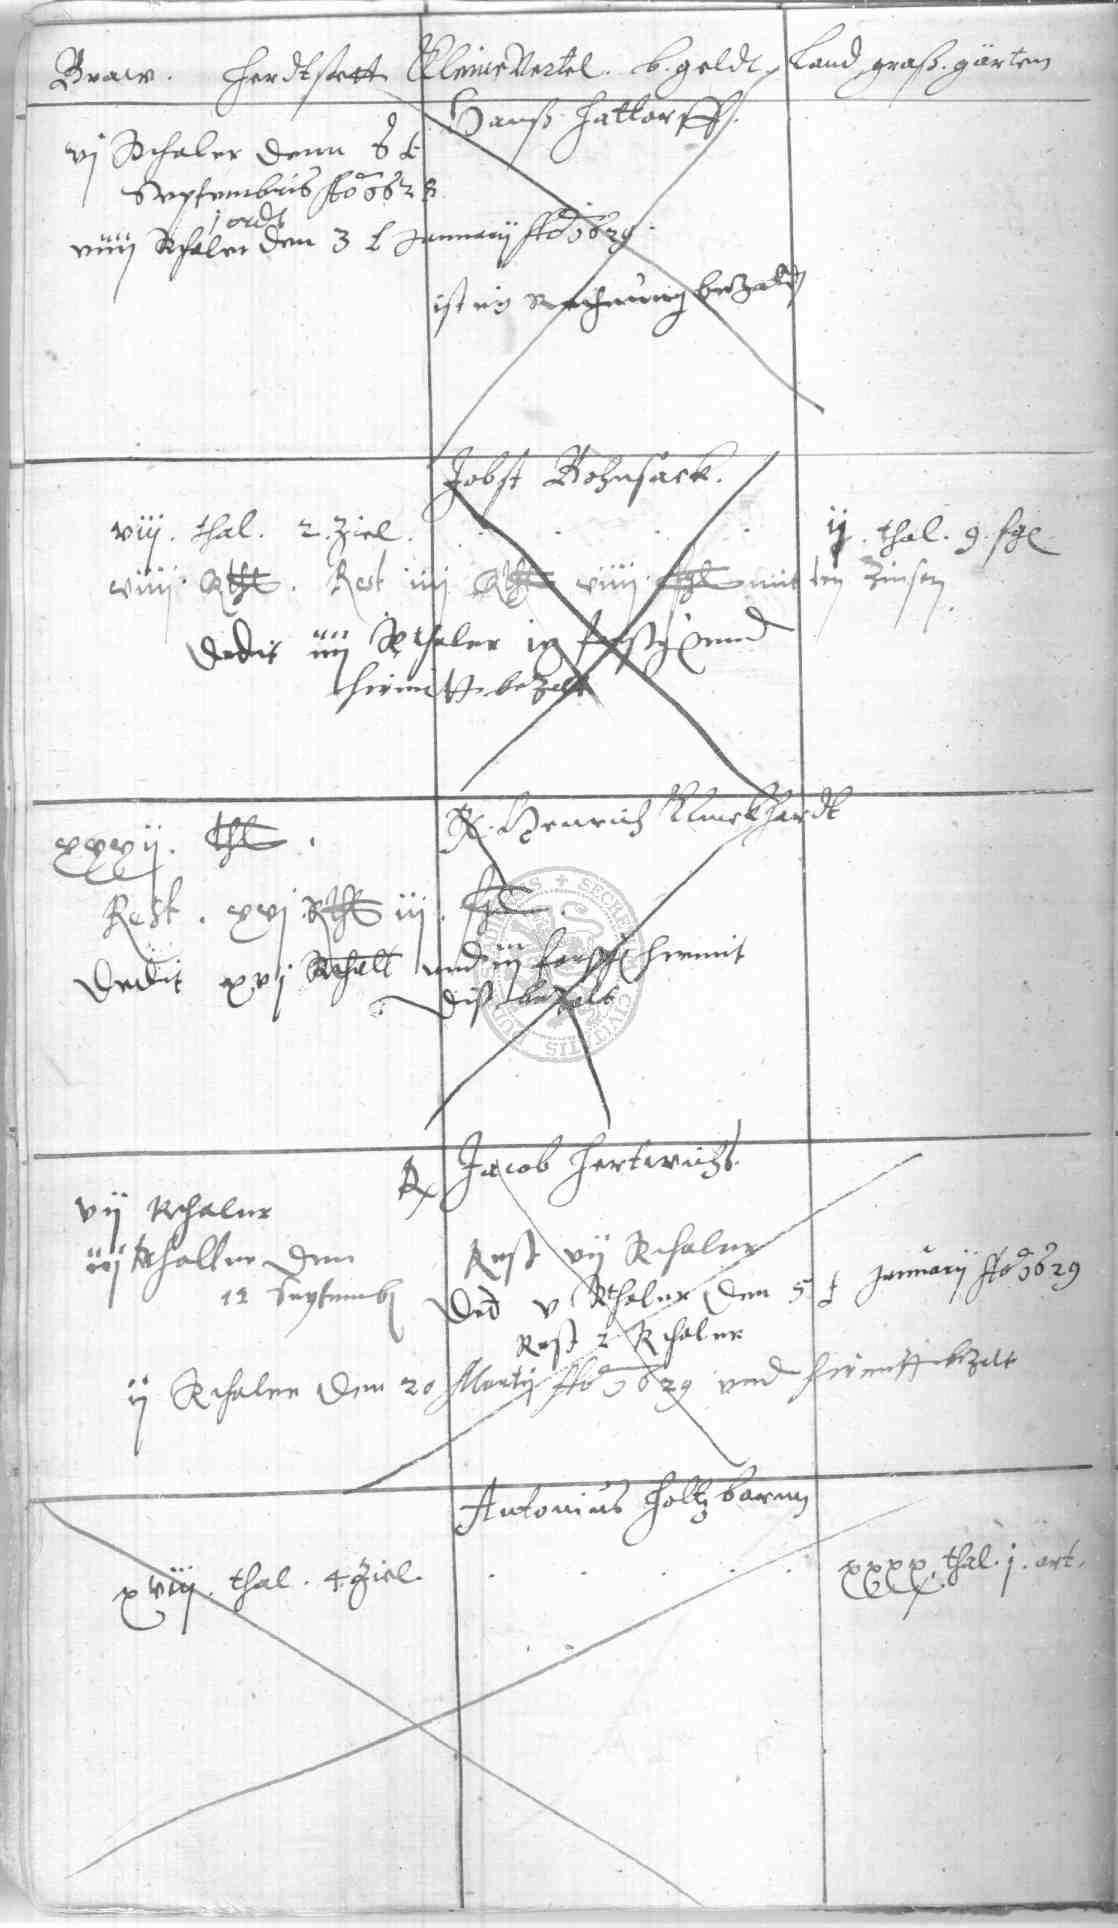 Braw. Herdtstett Kleine Vertel. b. geldt Land, graß. gärten
Hanß Hattorff.
vj Rthaler denn
Septembris Ao 1628
j ordt
viiij Rthaler den 3 Januarij Ao 1629.
ist in Rechnung bezalt
Jobst Bohnsack.
viij. thal. 2. Ziel. ij. thal. 9. fgl.
viiij. Rthl. Rest iiij Rthl viiij. fgl mit den Zinsen
Dedit iiij Rthaler und
hiemitt bezalt
R. Henrich Klinckhardt
xxxvij. thl.
Rest. xvj. Rthl iij. fgl.
Dedit xvj Rthall und iij hiemit
diß bezalt
R Jacob Hertwichs.
vij Rthaler
iiij Rthaller den
12 Septemb
Rest vij Rthaler
Ded v Rthaler den 5 Januarij Ao 1629
Rest 2 Rthaler
ij Rthaler den 20 Martij Ao 1629 und hiemitt bezalt
Antonius Holtzborn
xviij. thal. 4. Ziel. xxxx. thal. j. ort.
SECRET CIVITATIS DUD